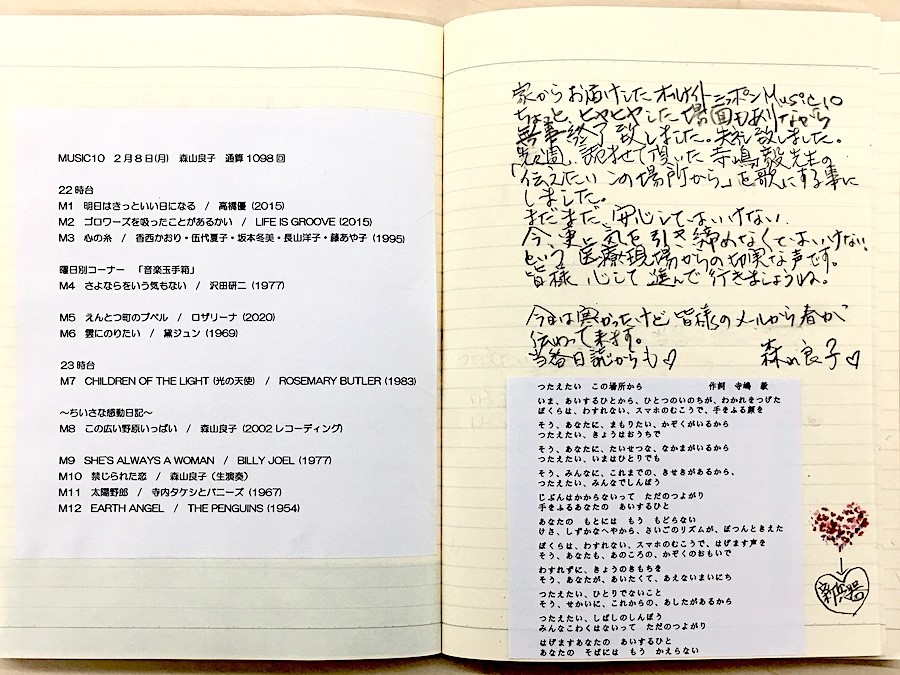 MUSIC10 2月8日(月) 森山良子 通算1098回
22時台
M1 明日はきっといい日になる / 高橋優 (2015)
M2 ゴロワーズを吸ったことがあるかい / LIFE IS GROOVE (2015)
M3 心の糸 / 香西かおり・伍代夏子・坂本冬美・長山洋子・藤あや子 (1995)
曜日別コーナー 「音楽玉手箱」
M4 さよならをいう気もない / 沢田研二 (1977)
M5 えんとつ町のプペル / ロザリーナ (2020)
M6 雲にのりたい / 黛ジュン (1969)
23時台
M7 CHILDREN OF THE LIGHT (光の天使) / ROSEMARY BUTLER (1983)
～ちいさな感動日記～
M8 この広い野原いっぱい / 森山良子 (2002 レコーディング)
M9 SHE'S ALWAYS A WOMAN / BILLY JOEL (1977)
M10 禁じられた恋 / 森山良子 (生演奏)
M11 太陽野郎 / 寺内タケシとバニーズ (1967)
M12 EARTH ANGEL / THE PENGUINS (1954)
家からお届けしたオールナイトニッポンMusic10
ちょっと、ヒヤヒヤした場面もありながら
無事終了致しました。失礼致しました。
先週、読ませて頂いた寺嶋毅先生の
「伝えたい この場所から」を歌にする事に
しました。
まだまだ、安心してはいけない。
今、更に気を引き締めなくてはいけない
という医療現場からの切実な声です。
皆様 心して進んで行きましょうね。
今日は寒かったけど 皆様のメールから春が
伝わって来ます。
当番日誌からも♡ 森山良子♡
つたえたい この場所から 作詞 寺嶋 毅
いま、あいするひとから、ひとつのいのちが、わかれをつげた
ぼくらは、わすれない、スマホのむこうで、手をふる顔を
そう、あなたに、まもりたい、かぞくがいるから
つたえたい、きょうはおうちで
そう、あなたに、たいせつな、なかまがいるから
つたえたい、いまはひとりでも
そう、みんなに、これまでの、きせきがあるから、
つたえたい、みんなでしんぼう
じぶんはかからないって ただのつよがり
手をふるあなたの あいするひと
あなたの もとには もう もどらない
けさ、しずかなへやから、さいごのリズムが、ぽつんときえた
ぼくらは、わすれない、スマホのむこうで、はげます声を
そう、あなたも、あのころの、かぞくのおもいで
わすれずに、きょうのきもちを
そう、あなたが、あいたくて、あえないまいにち
つたえたい、ひとりでないこと
そう、せかいに、これからの、あしたがあるから
つたえたい、しばしのしんぼう
みんなこわくはないって ただのつよがり
はげますあなたの あいするひと
あなたの そばには もう かえらない